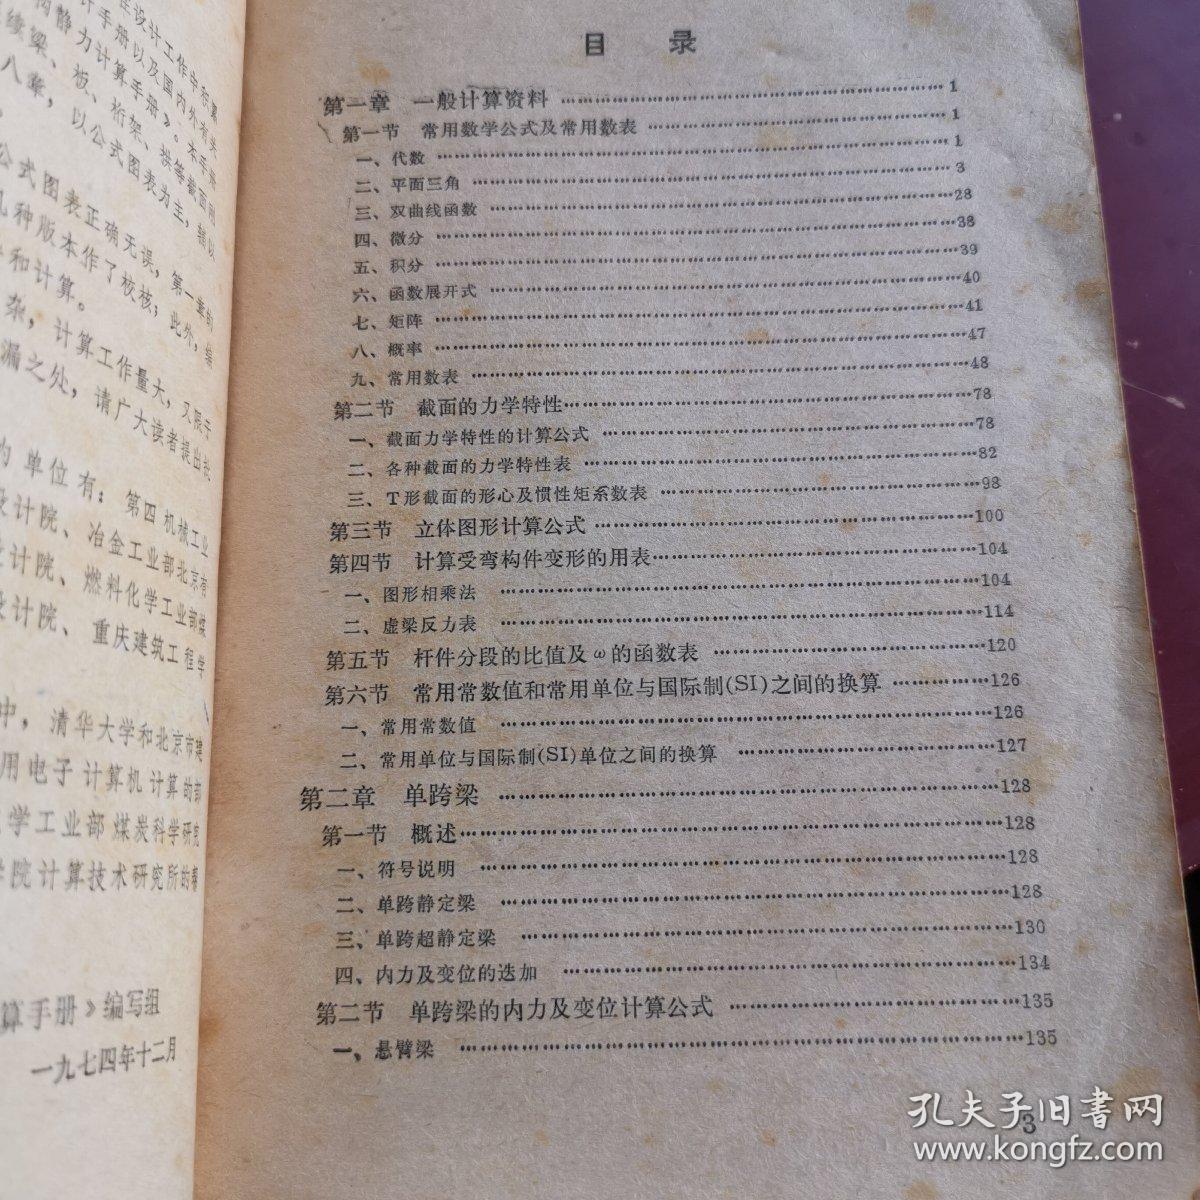 在设计工作中积累
计手册以及国内外有关
构静力计算手册》。本手册
续梁、板、桁架、拱等截面刚
八章，以公式图表为主，辅以
公式图表正确无误，第一章的
几种版本作了校核；此外，编
和计算。
杂，计算工作量大，又限于
漏之处，请广大读者提出批
的单位有：第四机械工业
设计院、冶金工业部北京有
设计院、燃料化学工业部煤
设计院、重庆建筑工程学
中，清华大学和北京市建
用电子计算机计算的部
学工业部煤炭科学研究
学院计算技术研究所的帮
算手册》编写组
一九七四年十二月
目 录
第一章 一般计算资料 ……1
第一节 常用数学公式及常用数表 ……1
一、代数 ……1
二、平面三角 ……3
三、双曲线函数 ……28
四、微分 ……38
五、积分 ……39
六、函数展开式 ……40
七、矩阵 ……41
八、概率 ……47
九、常用数表 ……48
第二节 截面的力学特性……78
一、截面力学特性的计算公式 ……78
二、各种截面的力学特性表 ……82
三、T形截面的形心及惯性矩系数表 ……98
第三节 立体图形计算公式 ……100
第四节 计算受弯构件变形的用表……104
一、图形相乘法 ……104
二、虚梁反力表 ……114
第五节 杆件分段的比值及ω的函数表 ……120
第六节 常用常数值和常用单位与国际制(SI)之间的换算 ……126
一、常用常数值 ……126
二、常用单位与国际制(SI)单位之间的换算 ……127
第二章 单跨梁 ……128
第一节 概述……128
一、符号说明 ……128
二、单跨静定梁 ……128
三、单跨超静定梁 ……130
四、内力及变位的迭加 ……134
第二节 单跨梁的内力及变位计算公式 ……135
一、悬臂梁 ……135
3
孔夫子旧书网
www.kongfz.com